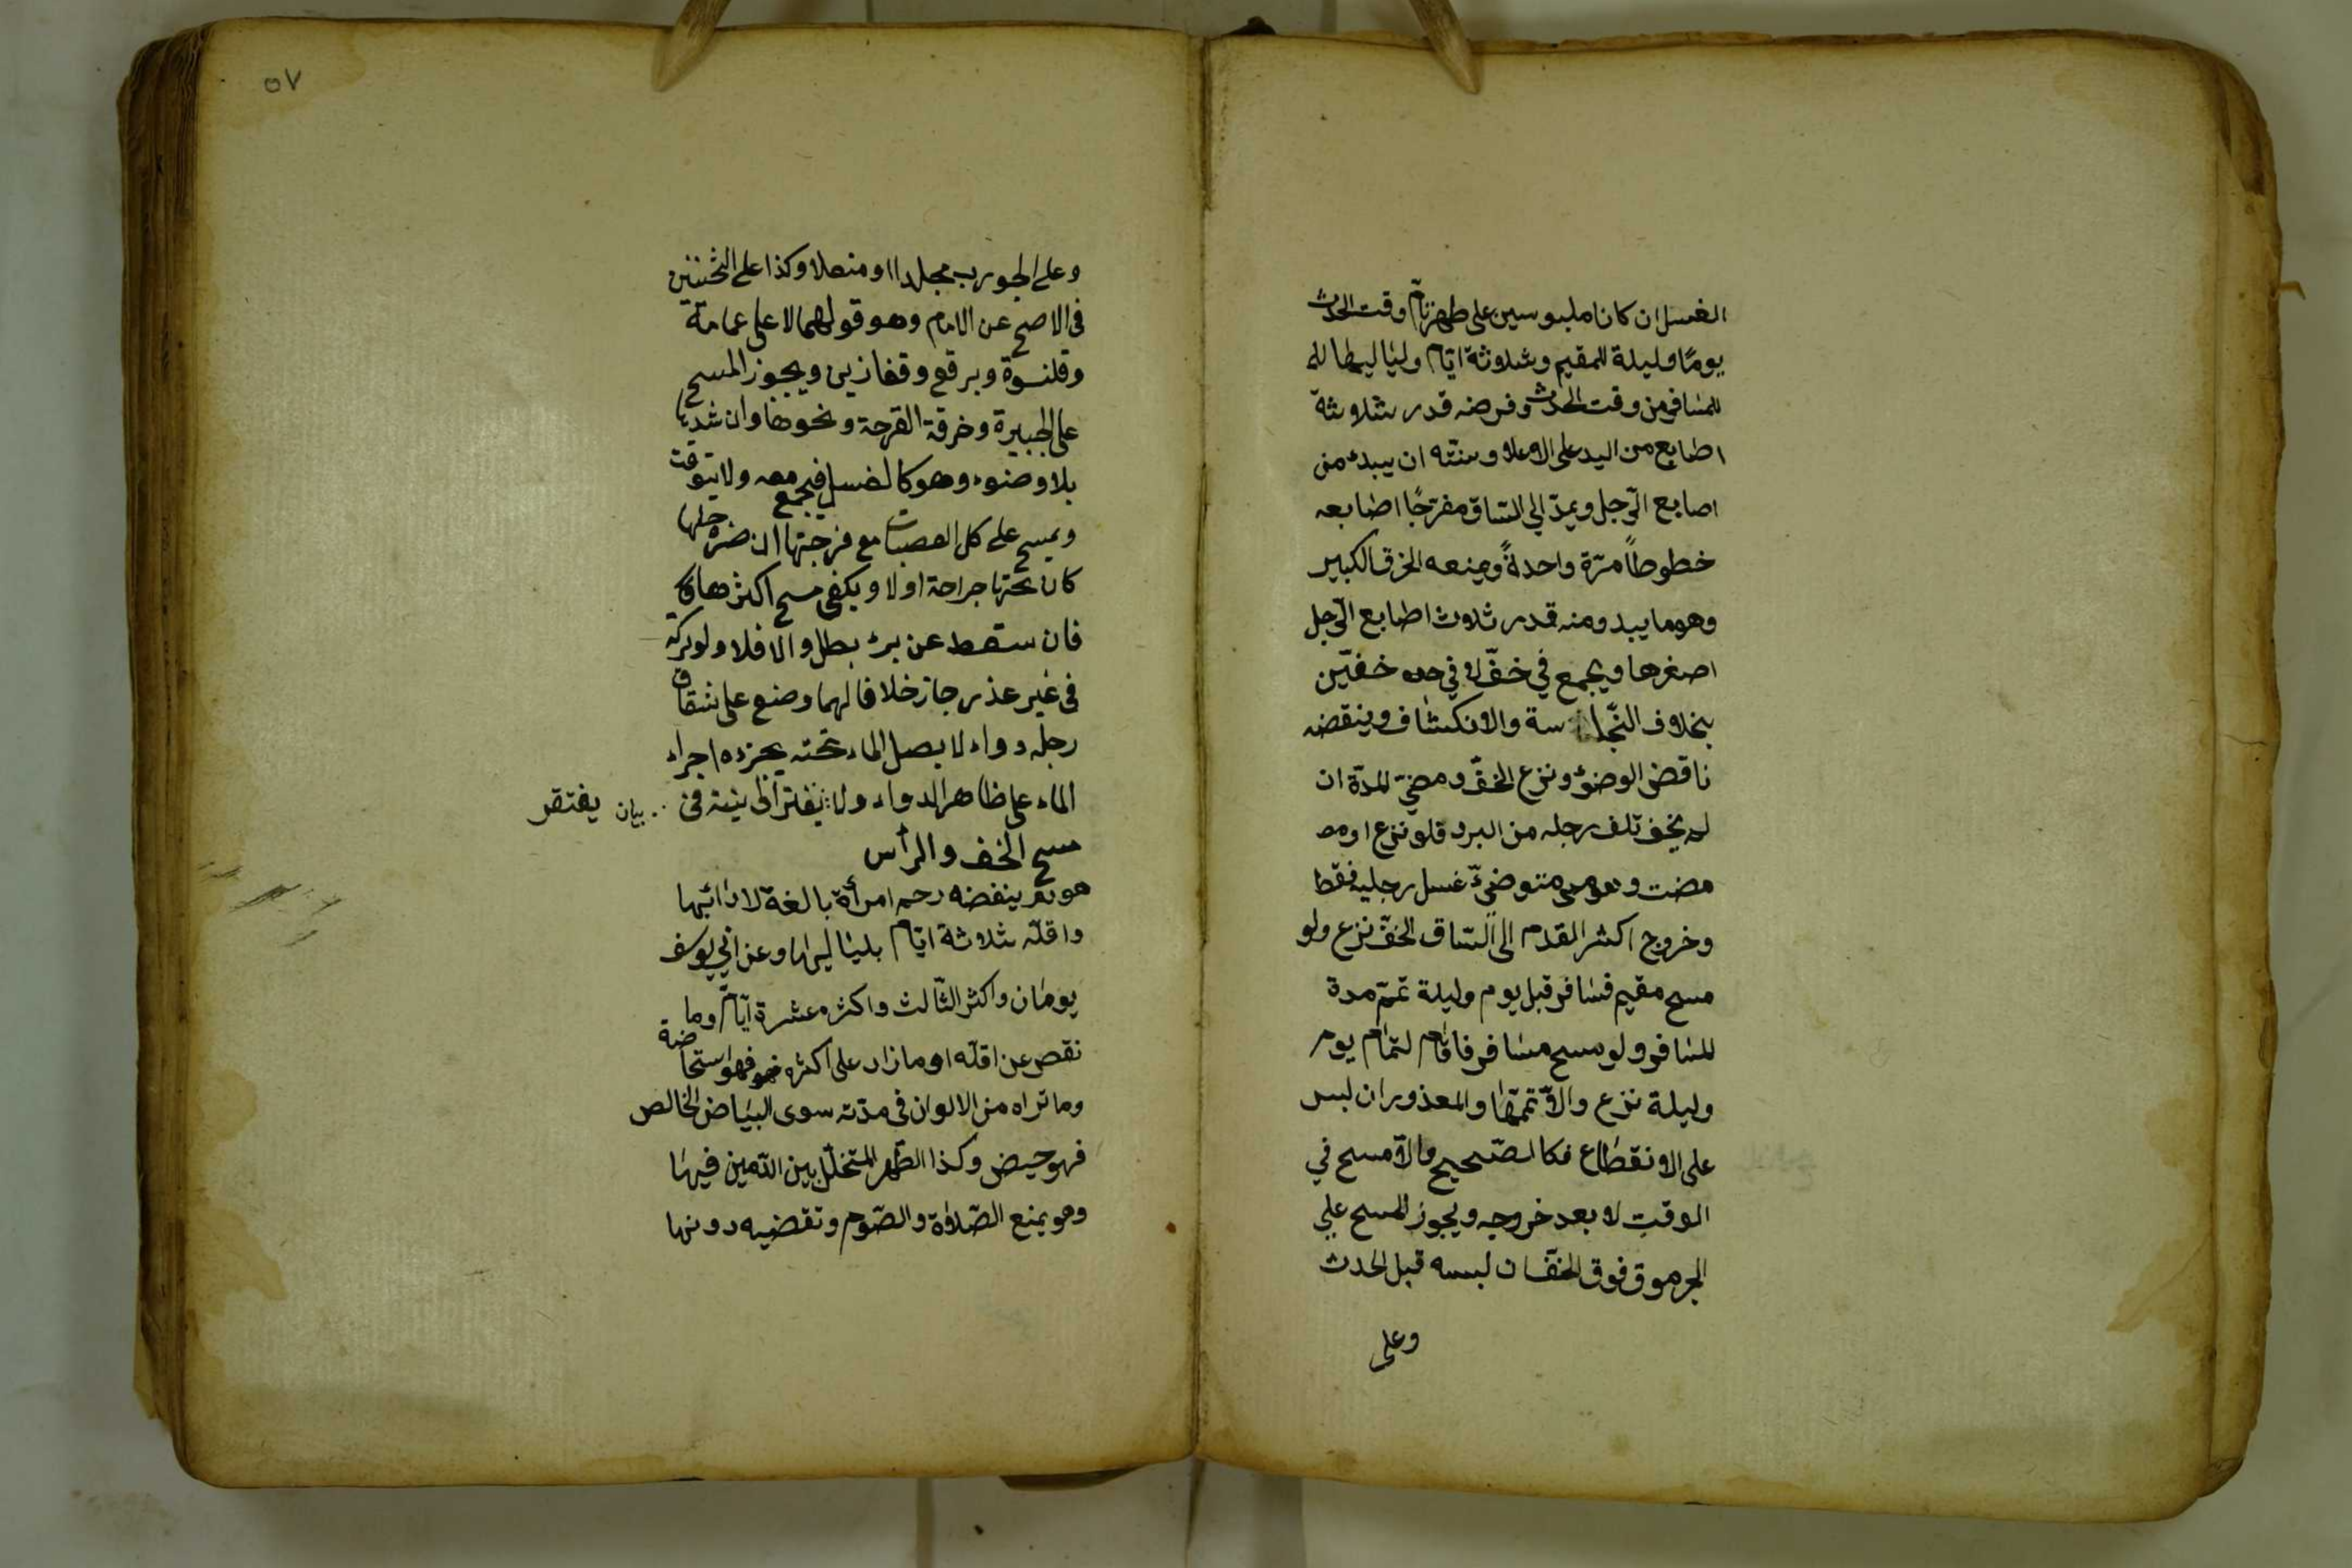 الغسل ان كانا ملبوسين على طهر تام وقت الحدث
يومًا وليلة للمقيم وثلاثة ايّام وليَاليها له
للمسَافر من وقت الحدث وفرضه قدر ثلاثة
اصابع من اليد على الاعلا وسنته ان يبدء من
اصابع الرّجل ويمدّ الي السّاق مفرّجًا اصَابعه
خطوطاً مرّة واحدةً ويمنعه الخرق الكبير
وهو ما يبدو منه قدر ثلاث اصابع الرّجل
اصغرها ويجمع في خفّ لا في خفّين
بخلاف النّجاسة والانكشاف وينقضه
ناقض الوضؤ ونزع الخفّ ومضيّ المدّة ان
لم يخف تلف رجله من البرد فلو نزع او مض
مضت وهو متوضئ غسل رجليه فقط
وخروج اكثر القدم الى السّاق الخفّ نزع ولو
مسح مقيم فسَافر قبل يوم وليلة تمّم مدة
المسَافر ولو مسح مسَافر فاقَام لتمَام يوم
وليلة نزع والاّ تمّمهَا والمعذور ان لبس
على الانقطَاع فكالصّحيح والاّ مسح في
الوقت لا بعد خروجه ويجوز المسح علي
الجرموق فوق الخفّ ان لبسه قبل الحدث
وعلى
٥٧
وعلى الجورب مجلدا او منعلا وكذا على الثخينين
في الاصح عن الامام وهو قولهما لا على عمامة
وقلنسوة وبرقع وقفازين ويجوز المسح
على الجبيرة وخرقة القرحة ونحوها وان شدها
بلا وضوء وهو كالغسل فيجمع معه ولا يتوقت
ويمسح على كل العصابة مع فرجتها ان ضره حلها
كان تحتها جراحة اولا ويكفى مسح اكثرها
فان سقط عن برء بطل والا فلا ولو تركه
في غير عذر جاز خلافا لهما وضع على شقاق
رجله دواء لا يصل الماء تحته يجزءه اجراء
الماء على ظاهر الدواء ولا يفتقر الى نية في
بيان يفتقر
مسح الخف والرأس
هو دم ينفضه رحم امرأة بالغة لا دَائبها
واقلّه ثلاثة ايّام بليَاليها وعن ابي يوسف
يومَان واكثر الثّالث واكثره عشرة ايّام وما
نقص عن اقلّه او ما زاد على اكثره فهو استحاضة
وما تراه من الالوان في مدّته سوى البيَاض الخالص
فهو حيض وكذا الطّهر المتخلّل بين الدّمين فيهَا
وهو يمنع الصّلاة والصّوم وتقضيه دونها